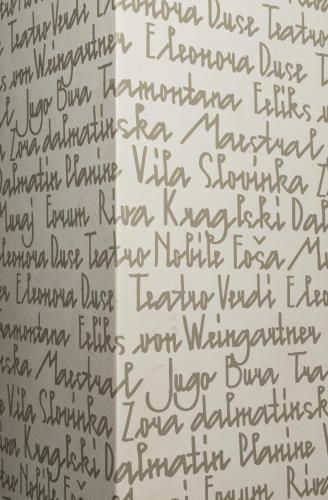 Teatro Verdi Eleonora Duse Teatro
von Weingartner Eleonora Duse
Jugo Bura Tramontana Feliks
Zora dalmatinska Maestral
Dalmatin Planine Vila Slovinka
Muraj Forum Riva Kraglski
Eleonora Duse Teatro Nobile Foša
Eleonora Duse Teatro Verdi
Tramontana Feliks von Weingartner
Maestral Jugo Bura
Vila Slovinka Zora dalmatinska
Kraglski Dalmatin Planine
Nobile Forum